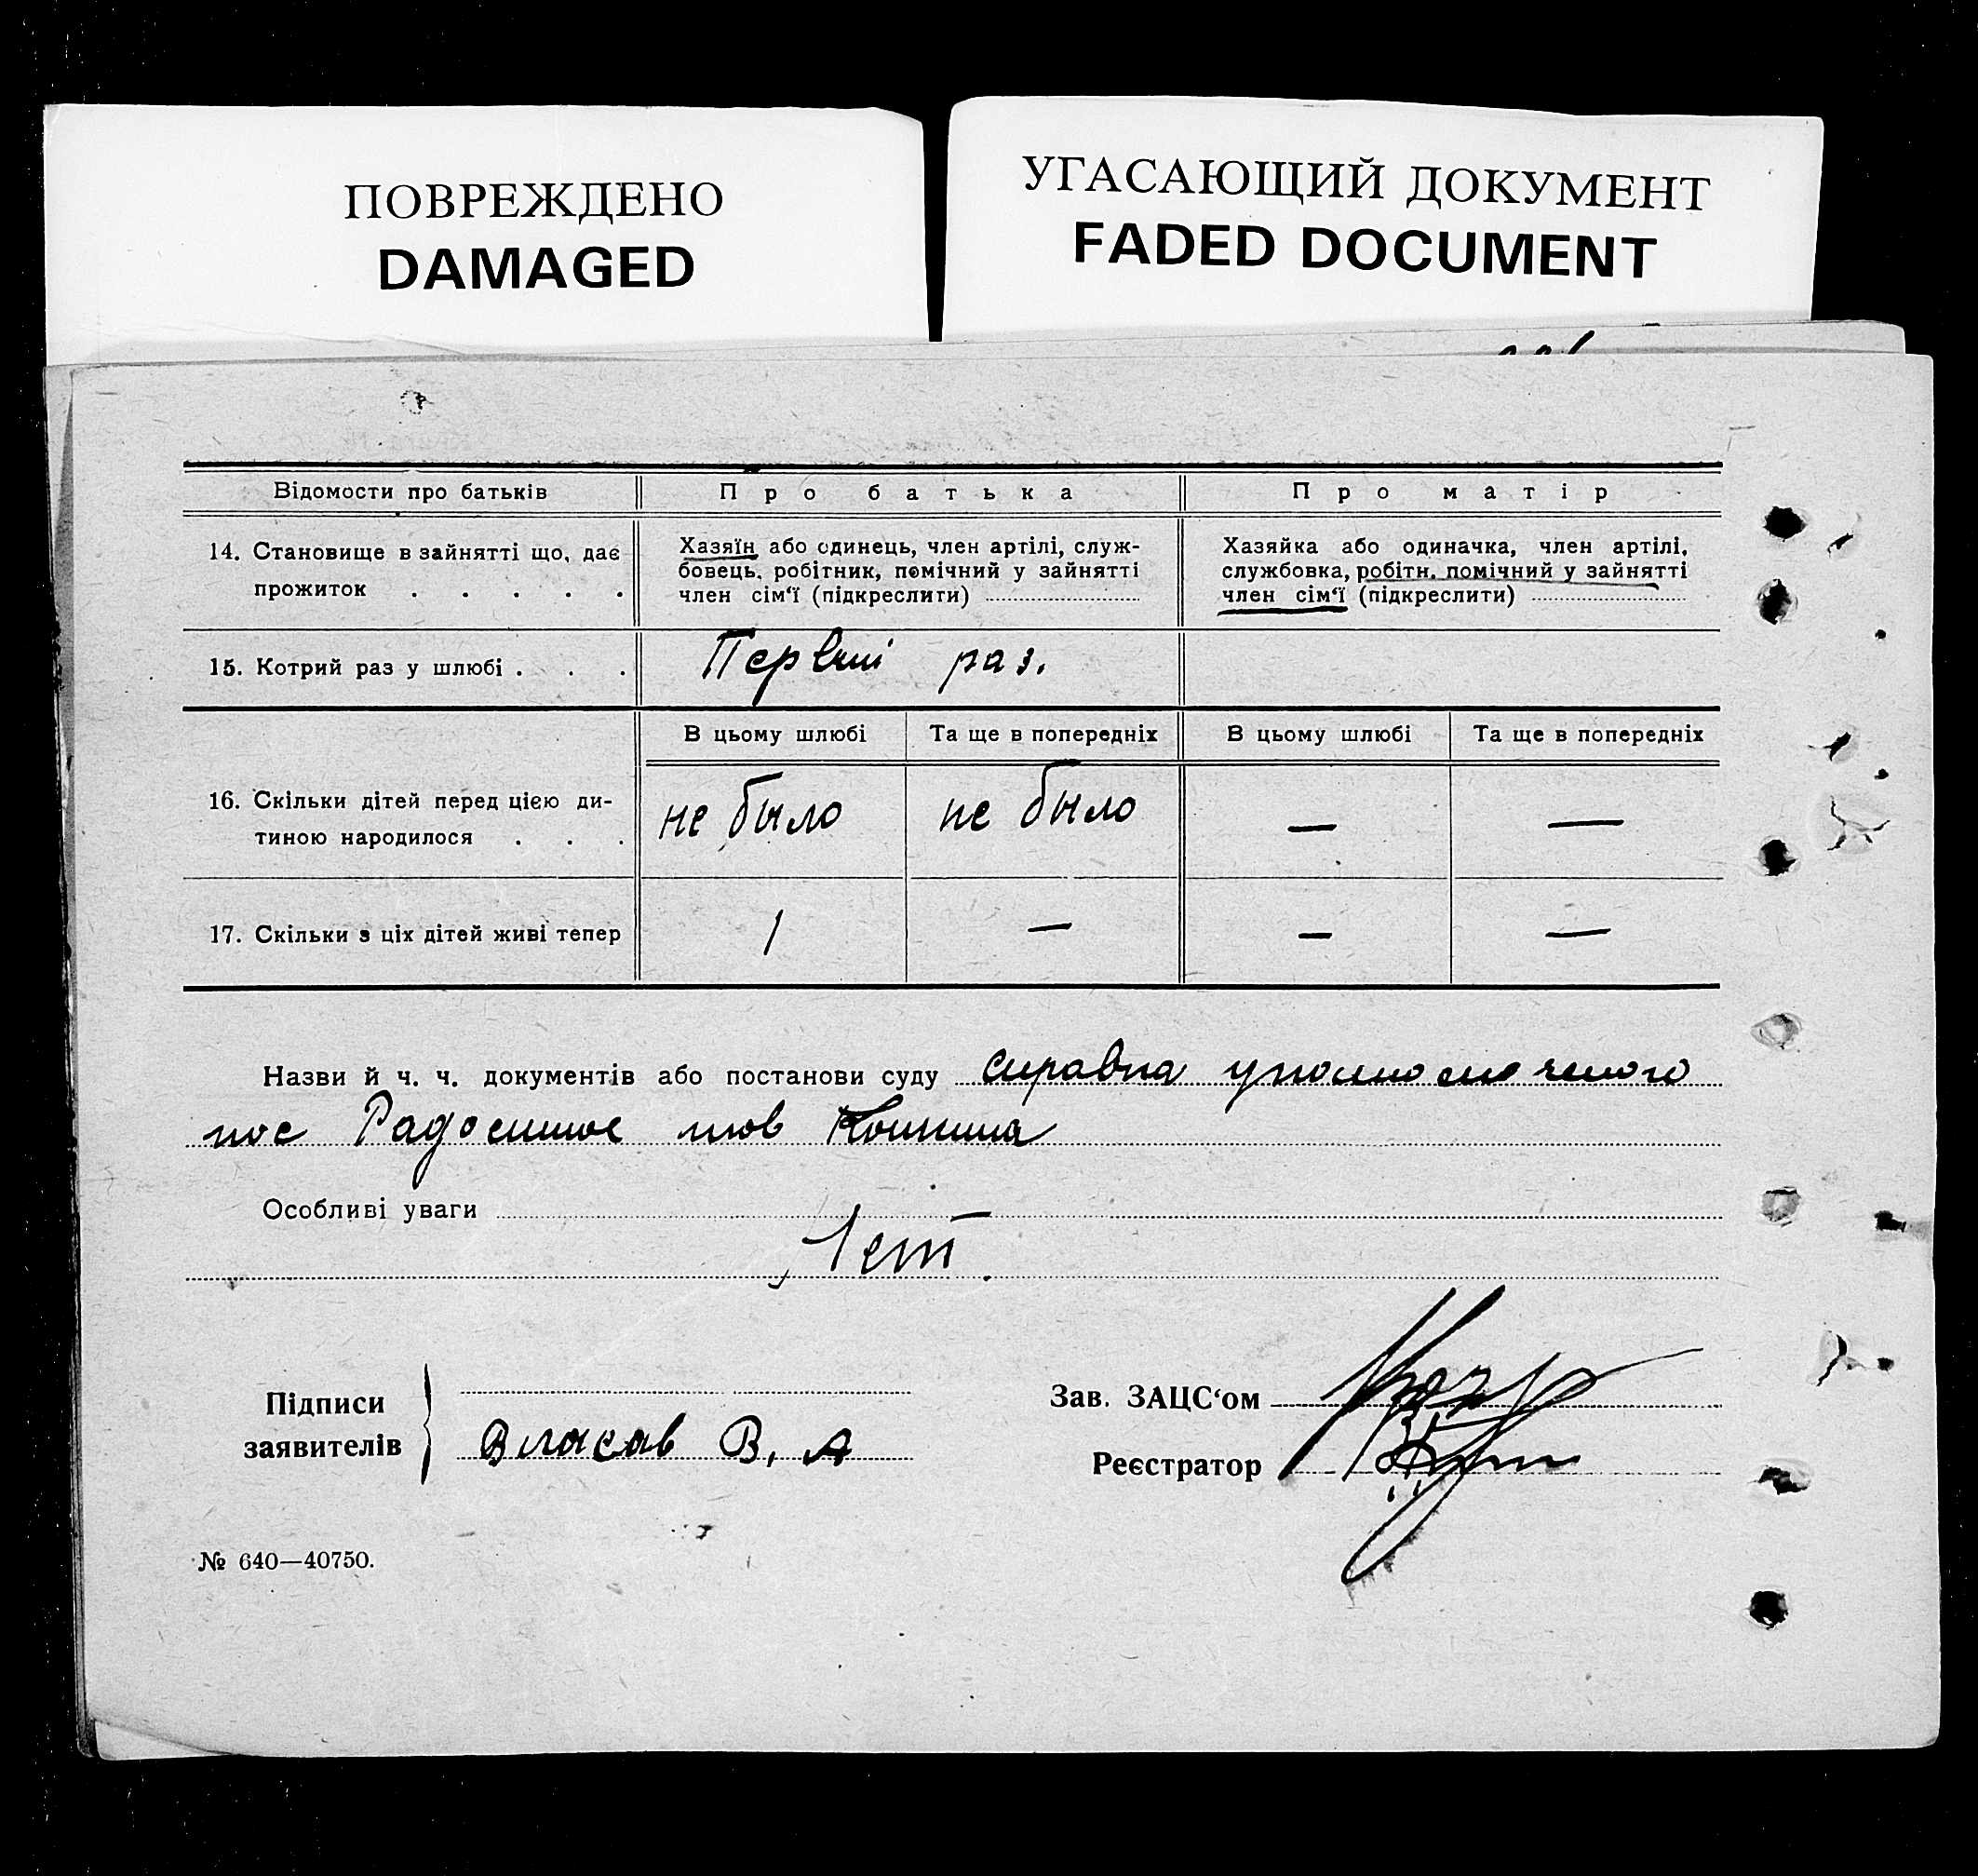 ПОВРЕЖДЕНО
DAMAGED
УГАСАЮЩИЙ ДОКУМЕНТ
FADED DOCUMENT
Відомости про батьків
Про батька
Про матір
14. Становище в зайнятті що, дає
прожиток . . . . .
Хазяїн або одинець, член артілі, служ-
бовець, робітник, помічний у зайнятті
член сім‘ї (підкреслити)
Хазяйка або одиначка, член артілі,
службовка, робітн. помічний у зайнятті
член сім‘ї (підкреслити)
15. Котрий раз у шлюбі . . .
Первий раз.
В цьому шлюбі
Та ще в попередніх
В цьому шлюбі
Та ще в попередніх
16. Скільки дітей перед цією ди-
тиною народилося . . .
не было
не было
—
—
17. Скільки з ціх дітей живі тепер
1
—
—
—
Назви й ч. ч. документів або постанови суду справка уполномоченого
пос тов
Особливі уваги
Нет.
Підписи
заявителів
Власов В. А
Зав. ЗАЦС‘ом
Реєстратор
№ 640—40750.